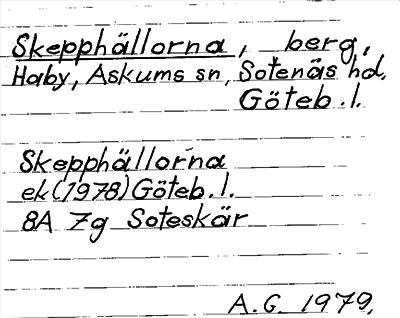 Skepphällorna, berg,
Haby, Askums sn, Sotenäs hd,
Göteb. l.
Skepphällorna
ek (1978) Göteb. l.
8A 7g Soteskär
A. G. 1979.